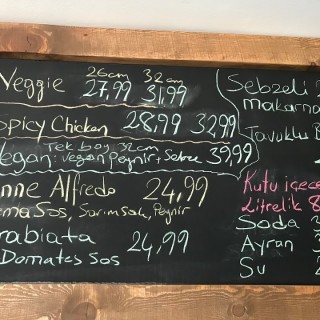 26cm 32cm
Veggie 27,99 31,99
Spicy Chicken 28,99 32,99
Tek boy 32cm
Vegan: Vegan Peynir + Sebze 39,99
nne Alfredo 24,99
ema Sos, Sarımsak, Peynir
rabiata 24,99
Domates Sos
Sebzeli
makarna
Tavuklu
Kutu içece
Litrelik 8
Soda
Ayran
Su